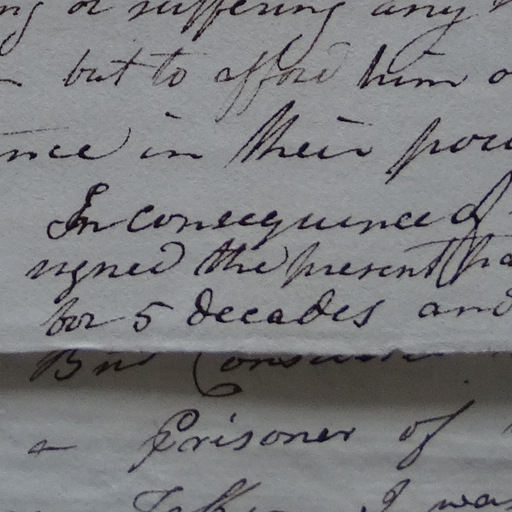 or suffering any
but to afford him
in their pow
In consequence of
signed the present pa
ber 5 decades and
a Prisoner of
I was